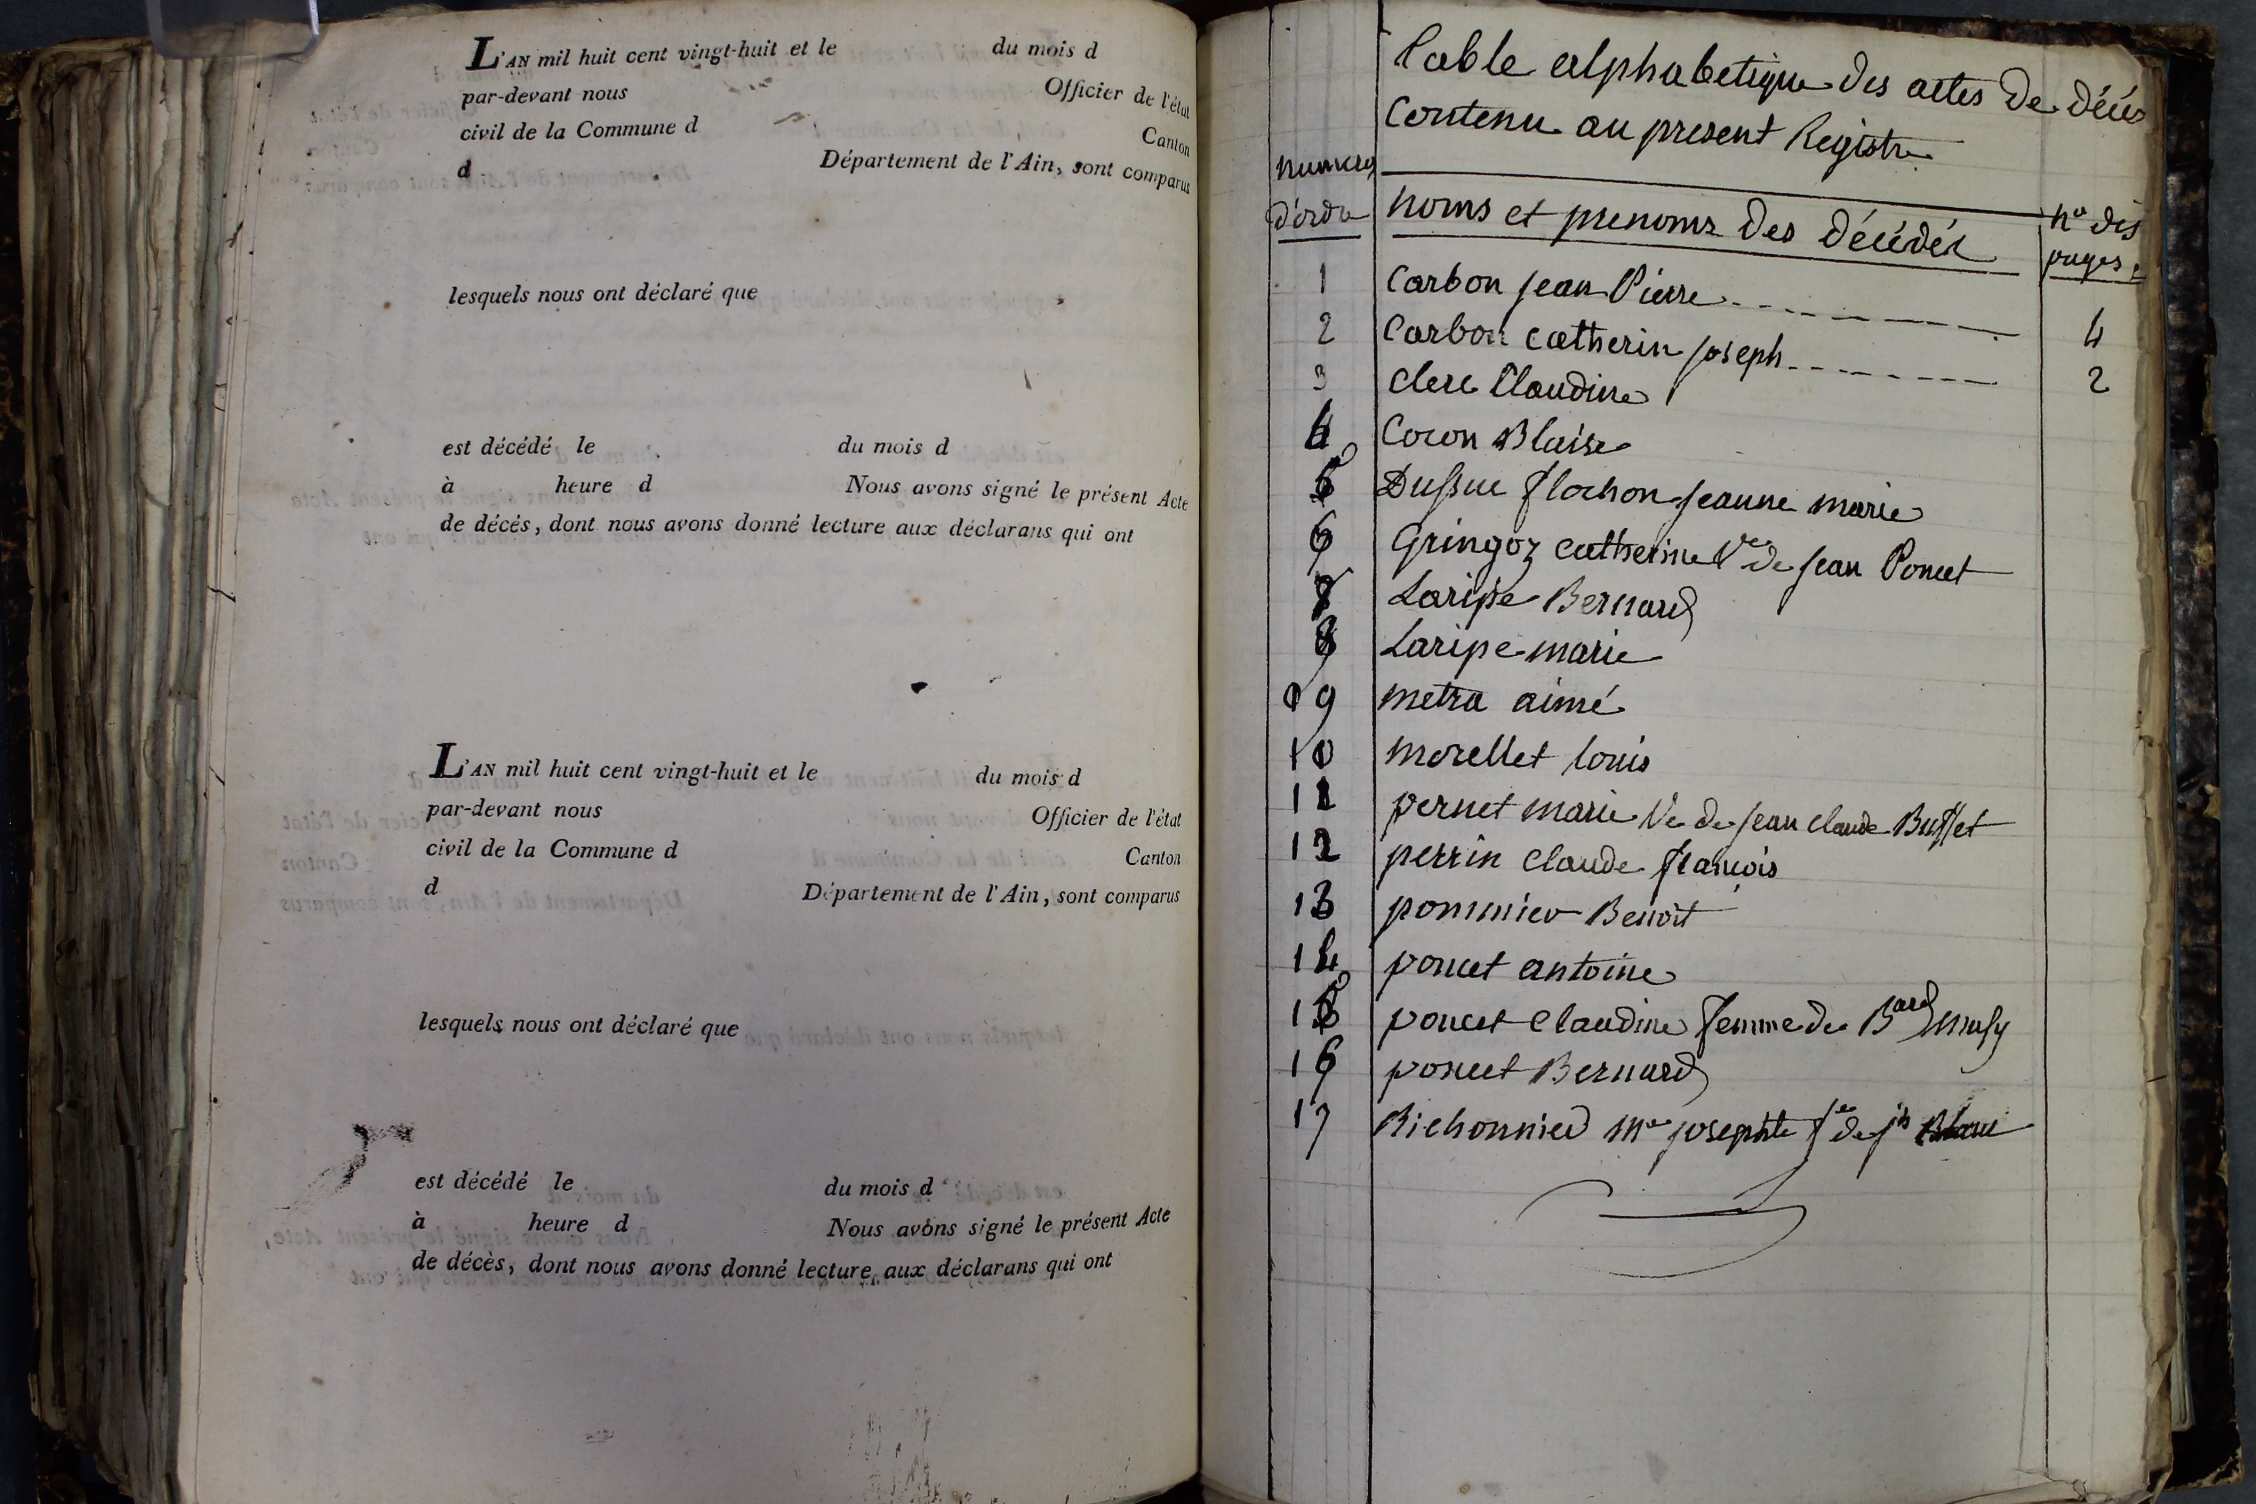 L'AN mil huit cent vingt-huit et le du mois d
par-devant nous Officier de l'état
civil de la Commune d Canton
d Département de l'Ain, sont comparus
lesquels nous ont déclaré que
est décédé le du mois d
à heure d Nous avons signé le présent Acte
de décés, dont nous avons donné lecture aux déclarans qui ont
L'AN mil huit cent vingt-huit et le du mois d
par-devant nous Officier de l'état
civil de la Commune d Canton
d Département de l'Ain, sont comparus
lesquels nous ont déclaré que
est décédé le du mois d
à heure d Nous avons signé le présent Acte
de décès, dont nous avons donné lecture aux déclarans qui ont
table alphabetique des actes de décés
Contenu au present Registre
numero d'ordre
noms et prenoms des décédés
nos des pages
1 Carbon jean Pierre 4
2 Carbon catherin joseph 2
3 Clerc Claudine
4 Cocon Blaise
5 Dussuc flochon jeanne marie
6 Gringoz catherine Ve de jean Poncet
7 Laripe Bernard
8 Laripe marie
9 metra aimé
10 morellet louis
11 pernet marie Ve de jean claude Buffet
12 perrin claude françois
13 pommier Benoit
14 poncet antoine
15 poncet claudine femme de Bard musy
16 poncet Bernard
17 Richonnier me josephte fe de jh Blanc